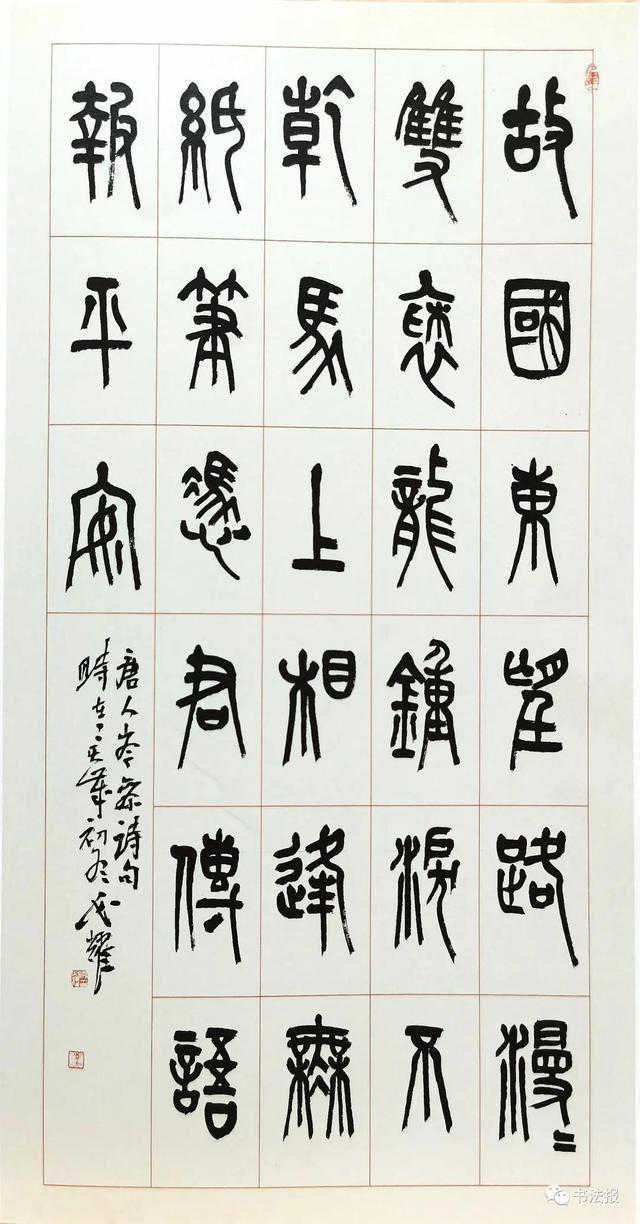 故國東望路漫〻
雙褎龍鍾淚不
乾馬上相逢無
紙筆憑君傳語
報平安
唐人岑參詩句
時在 初冬 耀
书法报